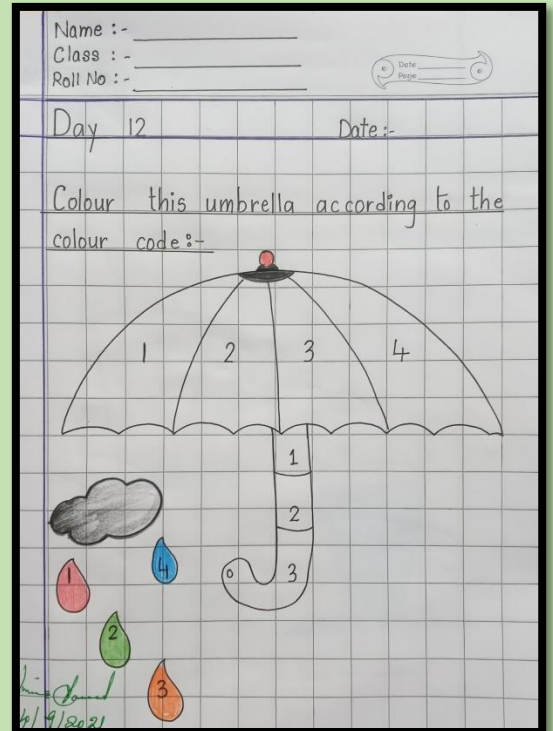 Name :-
Class :-
Roll No :-
Date
Page
Day 12 Date:-
Colour this umbrella according to the
colour code:-
1 2 3 4
1
2
3
4
1
2
3